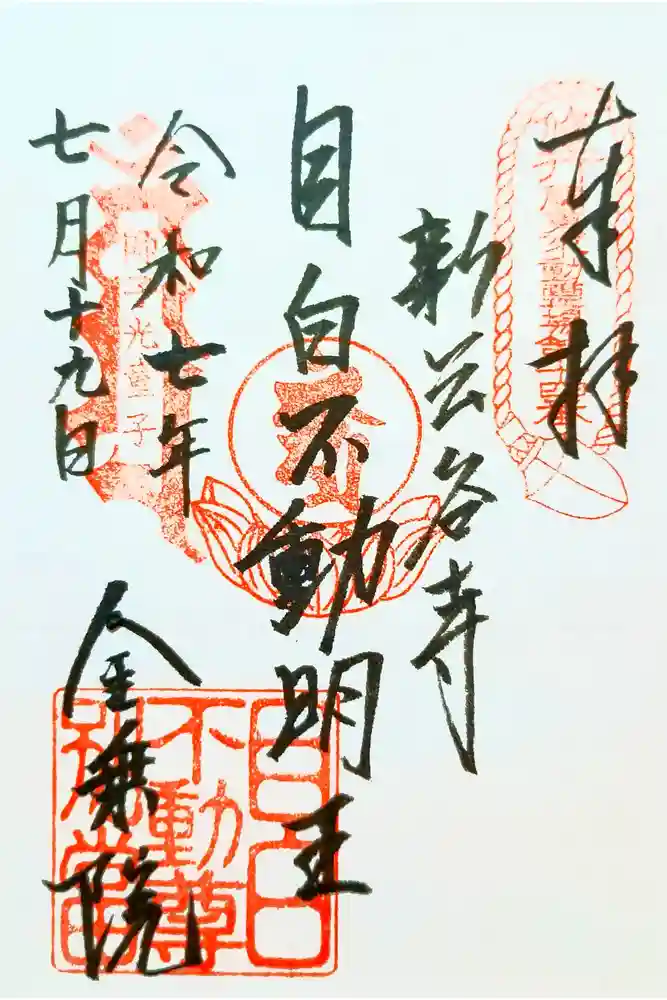 奉拝
新長谷寺
目白不動明王
令和七年
七月十九日
金乗院
目白
不動尊
別當